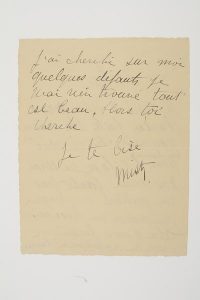 J'ai cherché sur moi
quelques defauts je
n'ai rien trouvé tout
est beau, Alors toi
cherche
Je te bise